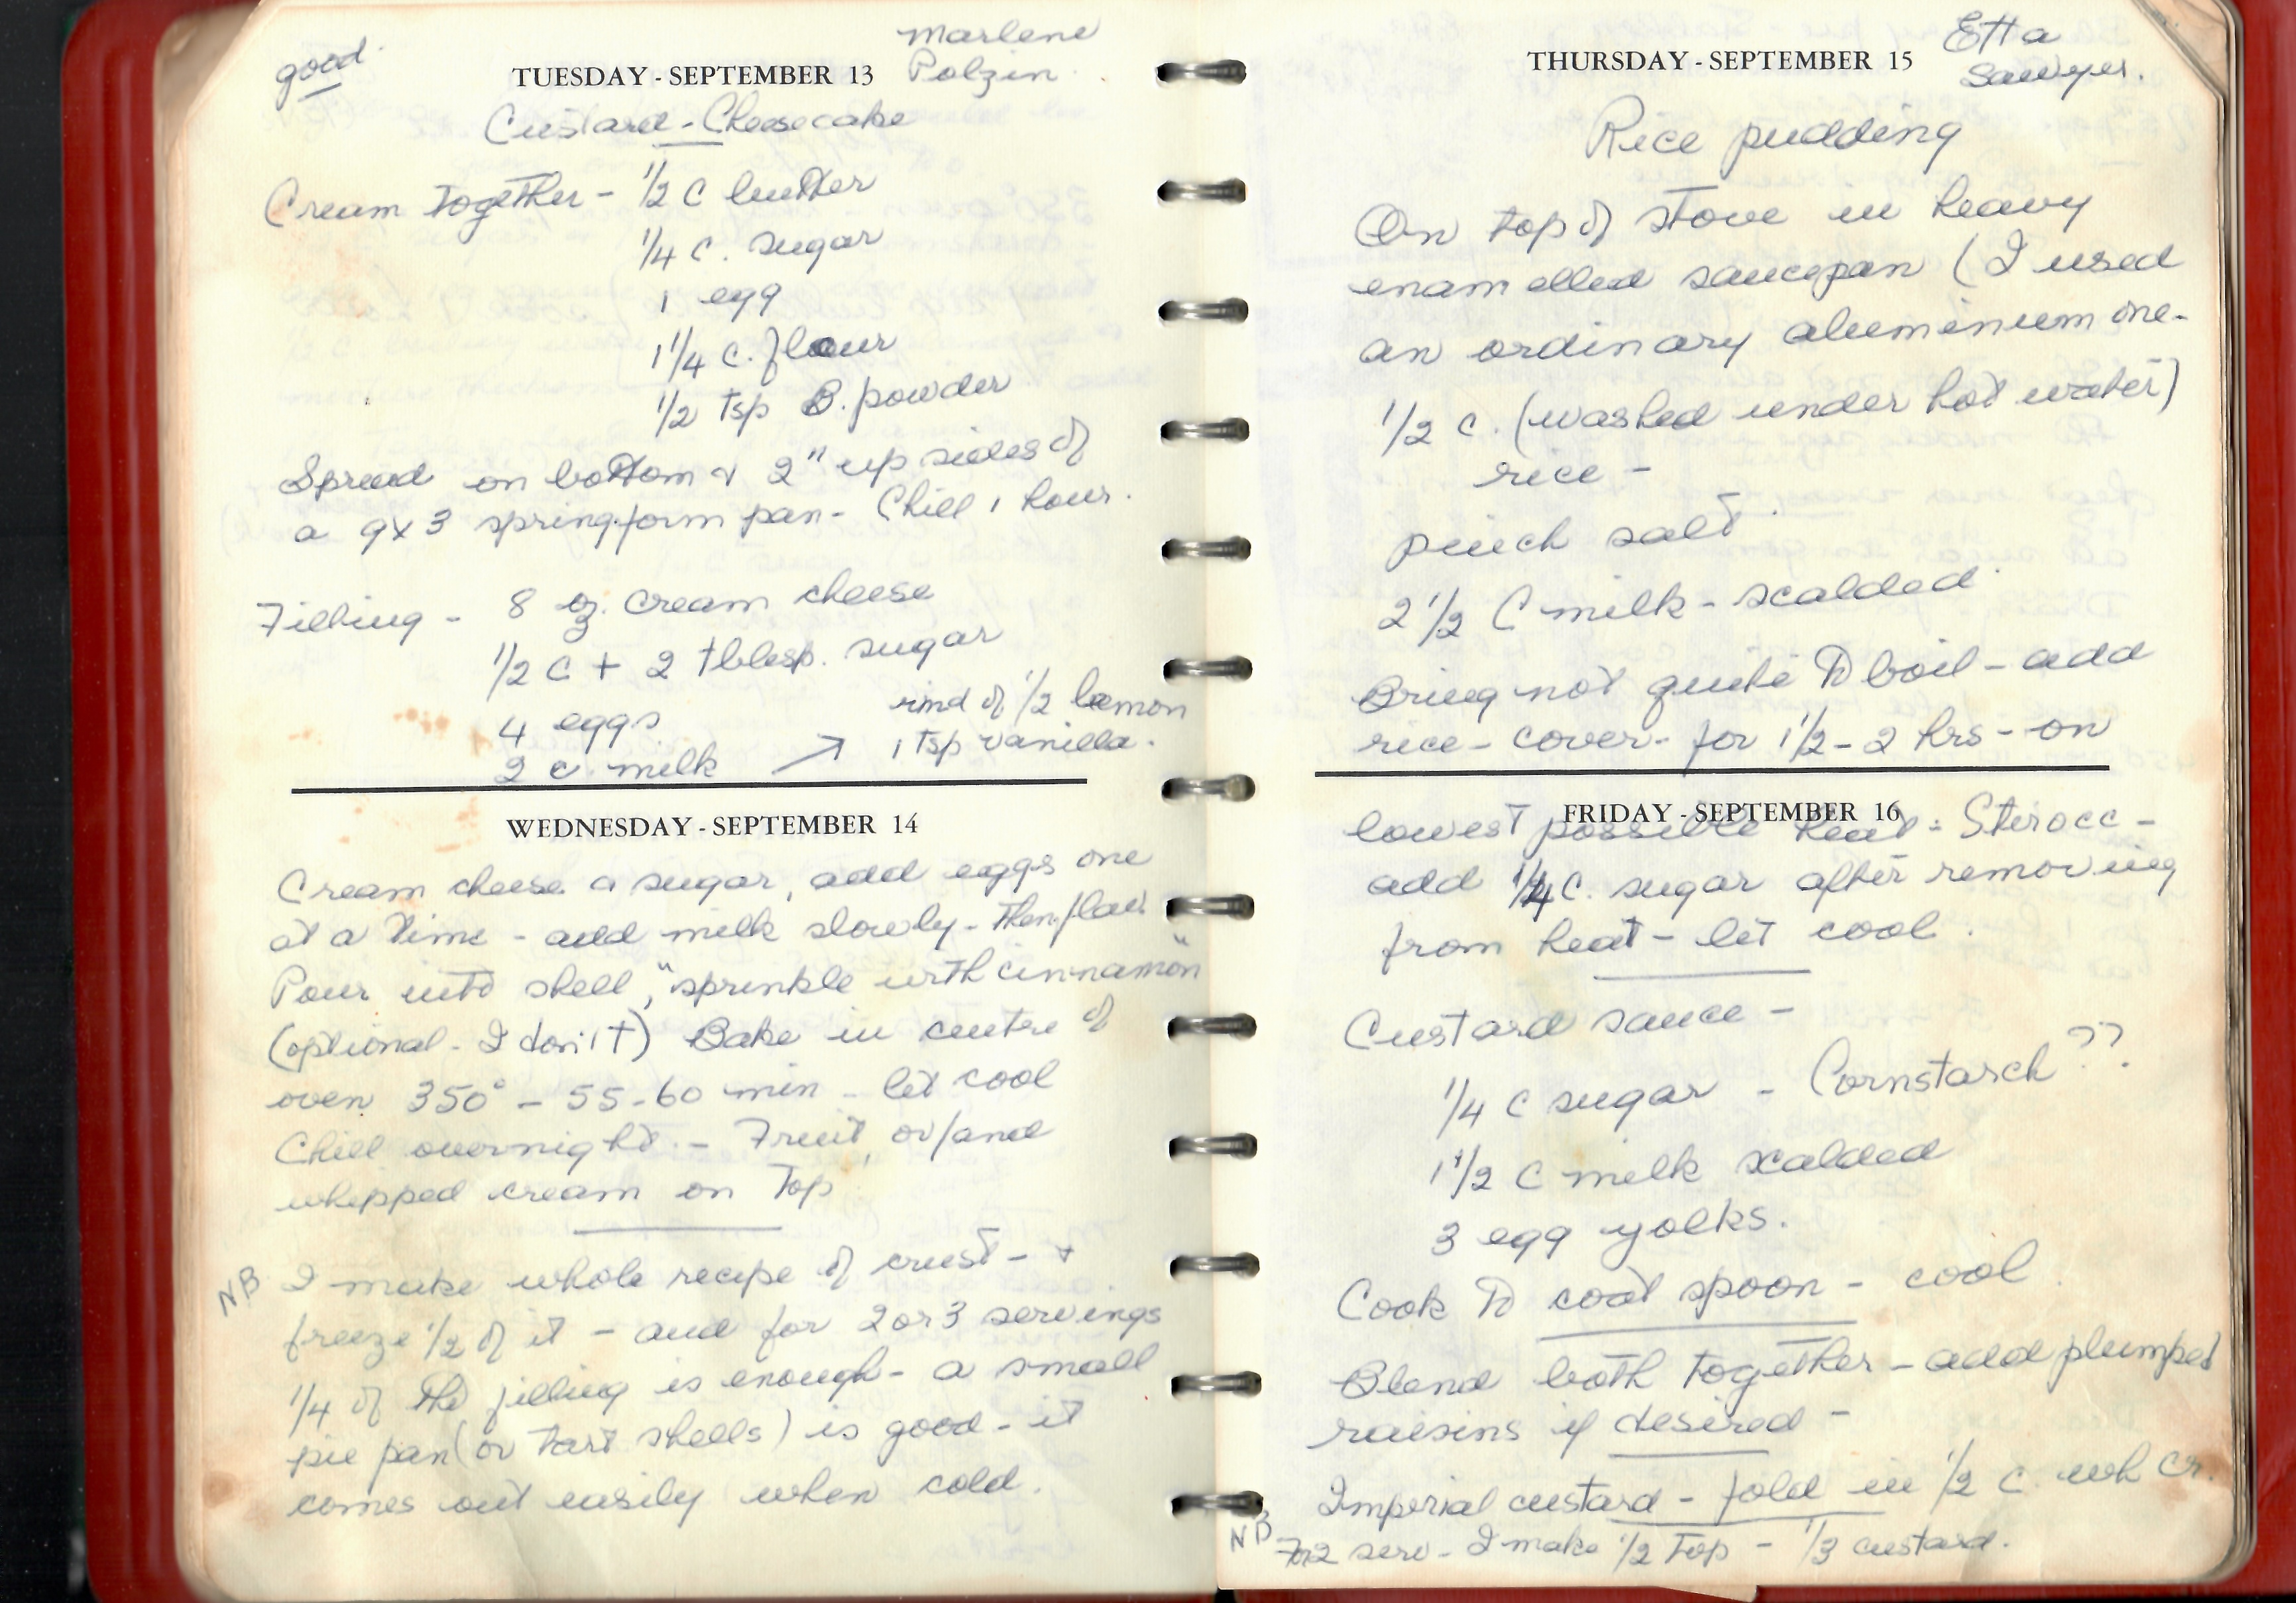 good
TUESDAY - SEPTEMBER 13
Marlene
Polzin
Custard - Cheesecake
Cream together - 1/2 C butter
1/4 C. sugar
1 egg
1 1/4 C. flour
1/2 tsp B. powder
Spread on bottom & 2" up sides of
a 9x3 spring form pan - Chill 1 hour.
Filling - 8 oz. cream cheese
1/2 C + 2 tblesp. sugar
4 eggs
rind of 1/2 lemon
2 c. milk → 1 tsp vanilla.
WEDNESDAY - SEPTEMBER 14
Cream cheese a sugar, add eggs one
at a time - add milk slowly - then flav.
Pour into shell, "sprinkle with cinnamon"
(optional - I don't) Bake in centre of
oven 350° - 55-60 min - let cool
Chill overnight. - Fruit, or/and
whipped cream on top
NB I make whole recipe of crust - &
freeze 1/2 of it - and for 2 or 3 servings
1/4 of the filling is enough - a small
pie pan (or tart shells) is good - it
comes out easily when cold.
THURSDAY - SEPTEMBER 15
Etta
Sawyer.
Rice pudding
On top of stove in heavy
enamelled saucepan (I used
an ordinary aluminium one -
1/2 c. (washed under hot water)
rice -
pinch salt.
2 1/2 C milk - scalded.
Bring not quite to boil - add
rice - cover - for 1 1/2 - 2 hrs - on
FRIDAY - SEPTEMBER 16
lowest possible heat - Stir occ -
add 1/4 C. sugar after removing
from heat - let cool.
Custard sauce -
1/4 C sugar - Cornstarch ??
1 1/2 C milk scalded
3 egg yolks.
Cook to coat spoon - cool
Blend both together - add plumped
raisins if desired -
Imperial custard - fold in 1/2 C. wh cr.
NB For 2 serv - I make 1/2 top - 1/3 custard.